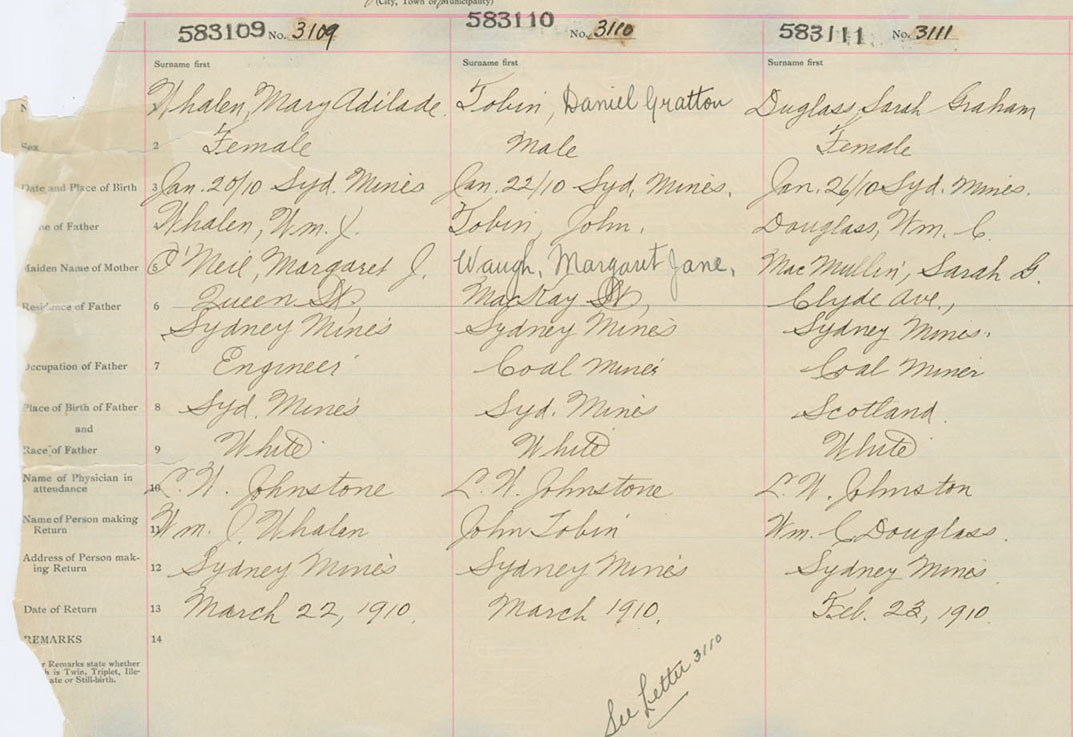 (City, Town or Municipality)
583109 No. 3109 583110 No. 3110 583111 No. 3111
Surname first Surname first Surname first
Whalen, Mary Adilade. Tobin, Daniel Gratton Duglass, Sarah Graham
Sex 2 Female Male Female
Date and Place of Birth 3 Jan. 20/10 Syd. Mines Jan. 22/10 Syd, Mines. Jan. 26/10 Syd. Mines.
me of Father Whalen, Wm. J. Tobin, John. Douglass, Wm. C.
Maiden Name of Mother O'Neil, Margaret J. Waugh, Margaret Jane, MacMullin, Sarah G.
Residence of Father 6 Queen St, MacKay St, Clyde Ave.,
Sydney Mines Sydney Mines Sydney Mines.
Occupation of Father 7 Engineer Coal Miner Coal Miner
Place of Birth of Father 8 Syd. Mines Syd. Mines Scotland.
and
Race of Father 9 White White White
Name of Physician in attendance 10 L. W. Johnstone L. W. Johnstone L. W. Johnston
Name of Person making Return 11 Wm. J. Whalen John Tobin Wm. C Douglass.
Address of Person making Return 12 Sydney Mines Sydney Mines Sydney Mines.
Date of Return 13 March 22, 1910. March 1910. Feb. 23, 1910.
REMARKS 14
r Remarks state whether
h is Twin, Triplet, Ille-
ate or Still-birth.
See Letter 3110